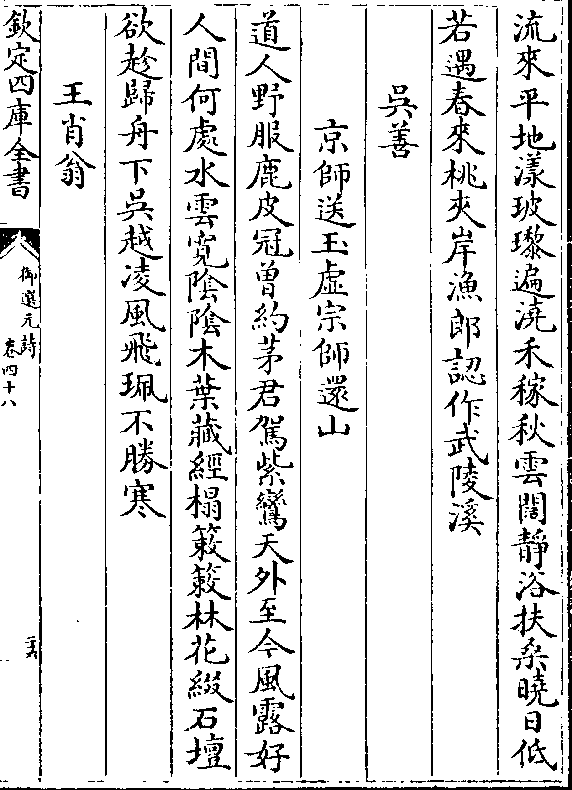 流來平地漾玻瓈遍澆禾稼秋雲闊靜浴扶桑曉日低
若遇春來桃夾岸漁郎認作武陵溪
吳善
京師送玉虛宗師還山
道人野服鹿皮冠曾約茅君駕紫鸞天外至今風露好
人間何處水雲寛陰陰木葉藏經榻簌簌林花綴石壇
欲趁歸舟下吳越凌風飛珮不勝寒
王肖翁
欽定四庫全書
御選元詩
卷四十八
二十六